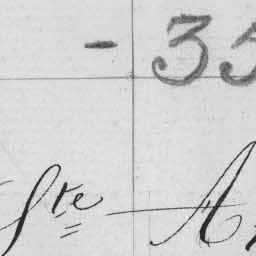 - 35
Ste A